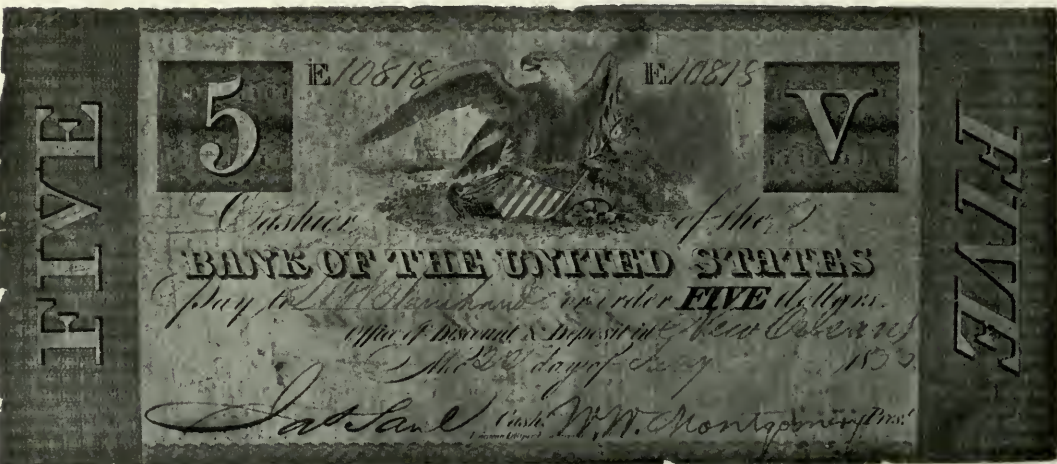 FIVE
5
E 10818
E 10818
V
FIVE
Cashier of the
BANK OF THE UNITED STATES
Pay to or order FIVE dollars.
Office of Discount & Deposit in New Orleans
the 22 day of 183
Jas Saul Cash. W.W. Montgomery Prest.